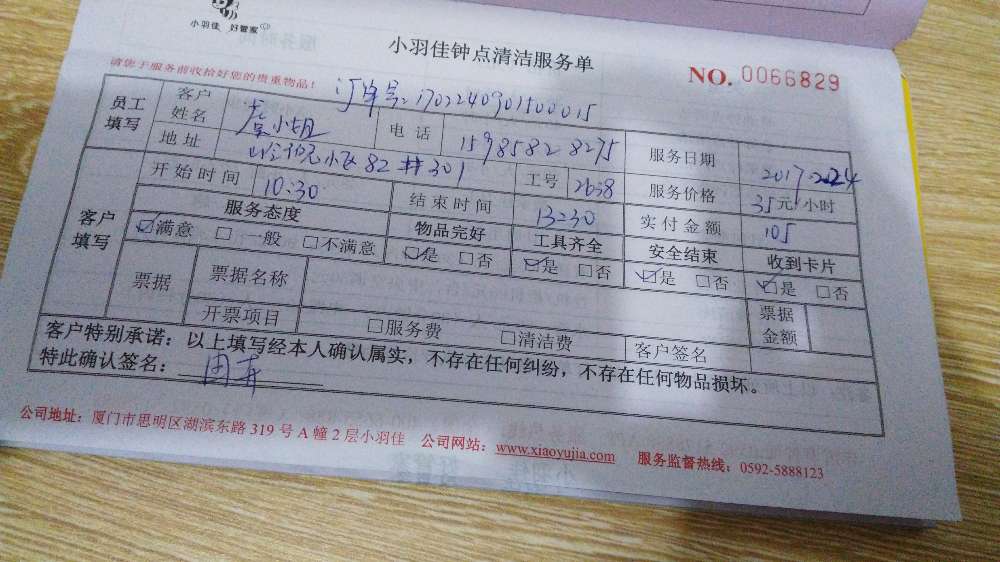 小羽佳 好管家
小羽佳钟点清洁服务单
NO. 0066829
请您于服务前收拾好您的贵重物品！
订单号：1702240901500015
员工填写 客户姓名 小姐 电话 15985828275 服务日期 2017.2.24
地址 小区82#301 工号 2658 服务价格 35元/小时
客户填写 开始时间 10:30 结束时间 13:30 实付金额 105
服务态度 物品完好 工具齐全 安全结束 收到卡片
☑满意 □一般 □不满意 ☑是 □否 ☑是 □否 ☑是 □否 ☑是 □否
票据 票据名称 票据金额
开票项目 □服务费 □清洁费 客户签名
客户特别承诺：以上填写经本人确认属实，不存在任何纠纷，不存在任何物品损坏。
特此确认签名：
公司地址：厦门市思明区湖滨东路 319 号 A 幢 2 层小羽佳 公司网站：www.xiaoyujia.com 服务监督热线：0592-5888123